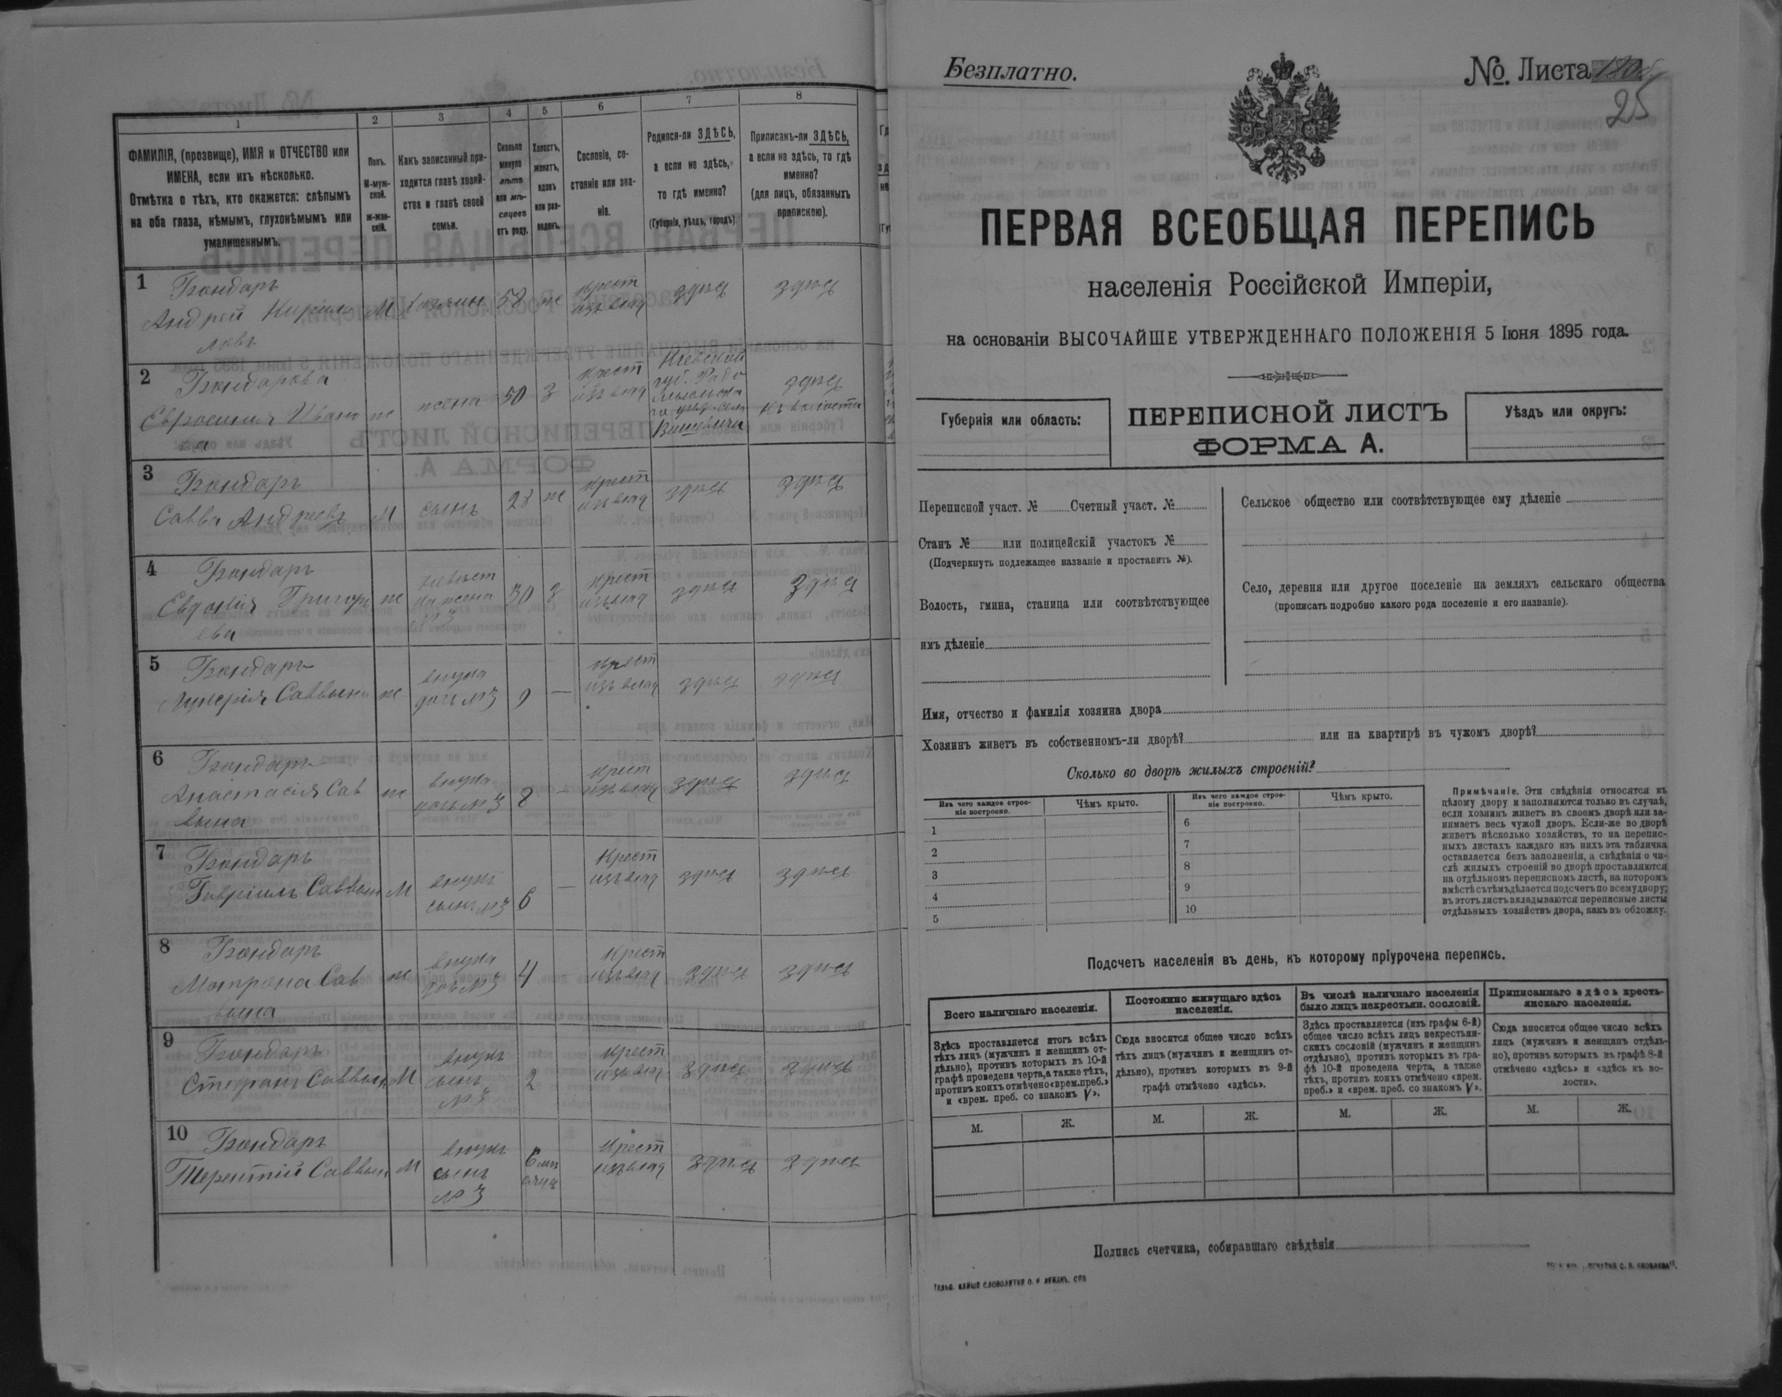 1
2
3
4
5
6
7
8
ФАМИЛІЯ, (прозвище), ИМЯ и ОТЧЕСТВО или
ИМЕНА, если ихъ нѣсколько.
Отмѣтка о тѣхъ, кто окажется: слѣпымъ
на оба глаза, нѣмымъ, глухонѣмымъ или
умалишеннымъ.
Полъ.
М-муж-
ской.
Ж-жен-
скій.
Какъ записанный при-
ходится главѣ хозяй-
ства и главѣ своей
семьи.
Сколько
минуло
лѣтъ
или мѣ-
сяцевъ
отъ роду.
Холостъ,
женатъ,
вдовъ
или раз-
веденъ.
Сословіе, со-
стояніе или зва-
ніе.
Родился-ли ЗДѢСЬ,
а если не здѣсь,
то гдѣ именно?
(Губернія, уѣздъ, городъ)
Приписанъ-ли ЗДѢСЬ,
а если не здѣсь, то гдѣ
именно?
(для лицъ, обязанныхъ
припискою).
1
Бондарь
Андрей Кирило
ловъ
М
хозяинъ
58
ж
крест
изъ влад
здѣсь
здѣсь
2
Бондарева
Евросинія Ивано
ж
жена
50
з
крест
изъ влад
Кіевской
губ.
здѣсь
3
Бондарь
Савва Андреевъ
М
сынъ
28
ж
крест
изъ влад
здѣсь
здѣсь
4
Бондарь
Евдокія Григорь
ева
ж
невѣст
ка жена
№3
30
з
крест
изъ влад
здѣсь
здѣсь
5
Бондарь
Лукерія Саввына
ж
внука
дочь №3
9
—
крест
изъ влад
здѣсь
здѣсь
6
Бондарь
Анастасія Сав
вына
ж
внука
дочь №3
8
крест
изъ влад
здѣсь
здѣсь
7
Бондарь
Гавріилъ Саввын
М
внукъ
сынъ №3
6
—
крест
изъ влад
здѣсь
здѣсь
8
Бондарь
Матрона Сав
вына
ж
внука
дочь №3
4
крест
изъ влад
здѣсь
здѣсь
9
Бондарь
Стефанъ Саввын
М
внукъ
сынъ
№3
2
крест
изъ влад
здѣсь
здѣсь
10
Бондарь
Терентій Саввын
М
внукъ
сынъ
№3
6 мѣ
сяцъ
крест
изъ влад
здѣсь
здѣсь
Безплатно.
№. Листа
25
ПЕРВАЯ ВСЕОБЩАЯ ПЕРЕПИСЬ
населенія Россійской Имперіи,
на основаніи ВЫСОЧАЙШЕ УТВЕРЖДЕННАГО ПОЛОЖЕНІЯ 5 Іюня 1895 года.
Губернія или область:
ПЕРЕПИСНОЙ ЛИСТЪ
ФОРМА А.
Уѣздъ или округъ:
Переписной участ. № Счетный участ. №
Станъ № или полицейскій участокъ №
(Подчеркнуть подлежащее названіе и проставить №).
Волость, гмина, станица или соотвѣтствующее
имъ дѣленіе
Сельское общество или соотвѣтствующее ему дѣленіе
Село, деревня или другое поселеніе на земляхъ сельскаго общества
(прописать подробно какого рода поселеніе и его названіе).
Имя, отчество и фамилія хозяина двора
Хозяинъ живетъ въ собственномъ-ли дворѣ? или на квартирѣ въ чужомъ дворѣ?
Сколько во дворѣ жилыхъ строеній?
Изъ чего каждое строе-
ніе построено.
Чѣмъ крыто.
1
2
3
4
5
Изъ чего каждое строе-
ніе построено.
Чѣмъ крыто.
6
7
8
9
10
Примѣчаніе. Эти свѣдѣнія относятся къ
цѣлому двору и заполняются только въ случаѣ,
если хозяинъ живетъ въ своемъ дворѣ или за-
нимаетъ весь чужой дворъ. Если-же во дворѣ
живетъ нѣсколько хозяйствъ, то на перепис-
ныхъ листахъ каждаго изъ нихъ эта табличка
оставляется безъ заполненія, а свѣдѣнія о чи-
слѣ жилыхъ строеній во дворѣ проставляются
на отдѣльномъ переписномъ листѣ, на которомъ
вмѣстѣ съ тѣмъ дѣлается подсчетъ по всему двору;
въ этотъ листъ вкладываются переписные листы
отдѣльныхъ хозяйствъ двора, какъ въ обложку.
Подсчетъ населенія въ день, къ которому пріурочена перепись.
Всего наличнаго населенія.
Здѣсь проставляется итогъ всѣхъ
тѣхъ лицъ (мужчинъ и женщинъ от-
дѣльно), противъ которыхъ въ 10-й
графѣ проведена черта, а также тѣхъ,
противъ коихъ отмѣчено «врем. преб.»
и «врем. преб. со знакомъ V».
М.
Ж.
Постоянно живущаго здѣсь
населенія.
Сюда вносится общее число всѣхъ
тѣхъ лицъ (мужчинъ и женщинъ от-
дѣльно), противъ которыхъ въ 9-й
графѣ отмѣчено «здѣсь».
М.
Ж.
Въ числѣ наличнаго населенія
было лицъ некрестьян. сословій.
Здѣсь проставляется (изъ графы 6-й)
общее число всѣхъ лицъ некрестьян-
скихъ сословій (мужчинъ и женщинъ
отдѣльно), противъ которыхъ въ гра-
фѣ 10-й проведена черта, а также
тѣхъ, противъ коихъ отмѣчено «врем.
преб.» и «врем. преб. со знакомъ V».
М.
Ж.
Приписаннаго здѣсь кресть-
янскаго населенія.
Сюда вносится общее число всѣхъ
лицъ (мужчинъ и женщинъ отдѣль-
но), противъ которыхъ въ графѣ 8-й
отмѣчено «здѣсь» и «здѣсь въ во-
лости».
М.
Ж.
Подпись счетчика, собиравшаго свѣдѣнія